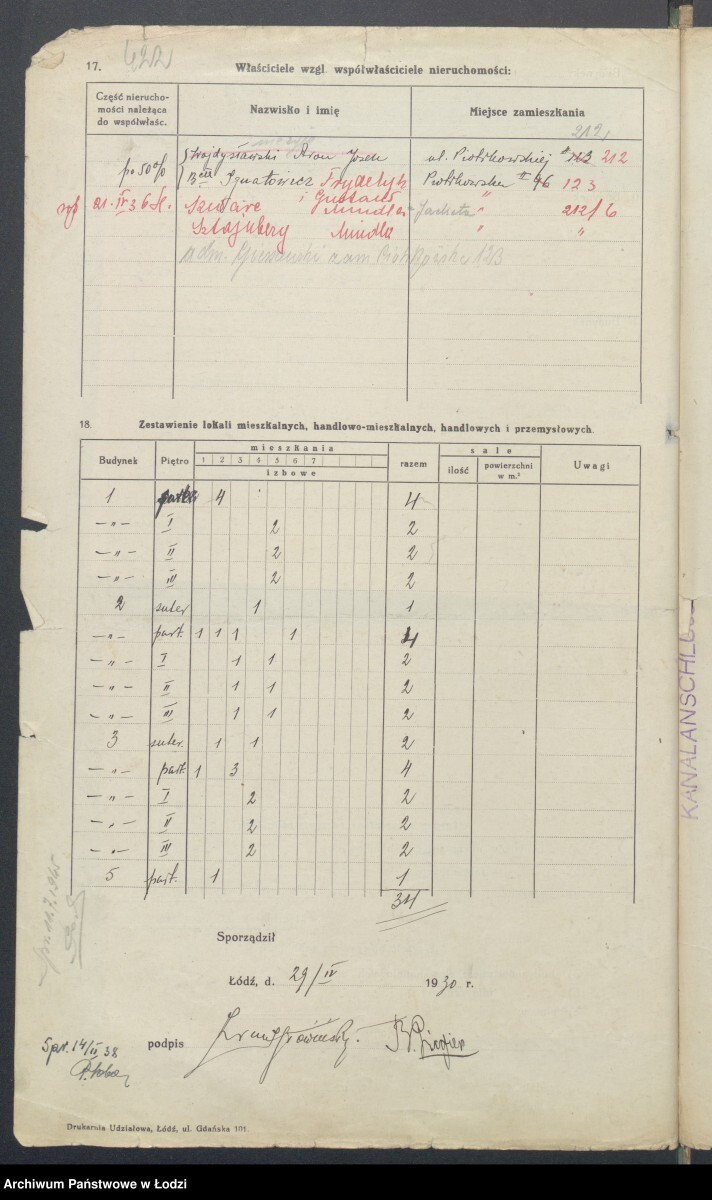 17.
Właściciele wzgl. współwłaściciele nieruchomości:
Część nierucho-
mości należąca
do współwłaśc.
Nazwisko i imię
Miejsce zamieszkania
212
po 50% Wojdysławski Aron Josek ul. Piotrkowskiej # 113 212
Bcia Ignatowicz Fryderyk Piotrkowska # 96 123
i Gustaw
Szware Mindla 212/6
Sztajnberg Mindla " "
adm. zam Piotrkowska 123
18. Zestawienie lokali mieszkalnych, handlowo-mieszkalnych, handlowych i przemysłowych.
Budynek Piętro mieszkania razem sale Uwagi
1 2 3 4 5 6 7
izbowe
ilość powierzchni
w m.²
1 parter 4 4
— „ — I 2 2
— „ — II 2 2
— „ — III 2 2
2 suter 1 1
— „ — part. 1 1 1 1 4
— „ — I 1 1 2
— „ — II 1 1 2
— „ — III 1 1 2
3 suter. 1 1 2
— „ — part. 1 3 4
— „ — I 2 2
— „ — II 2 2
— „ — III 2 2
5 part. 1 1
34
Sporządził
Łódź, d. 29/IV 1930 r.
Spr. 14/II 38
podpis
Drukarnia Udziałowa, Łódź, ul. Gdańska 101.
KANALANSCHLUSS
Archiwum Państwowe w Łodzi